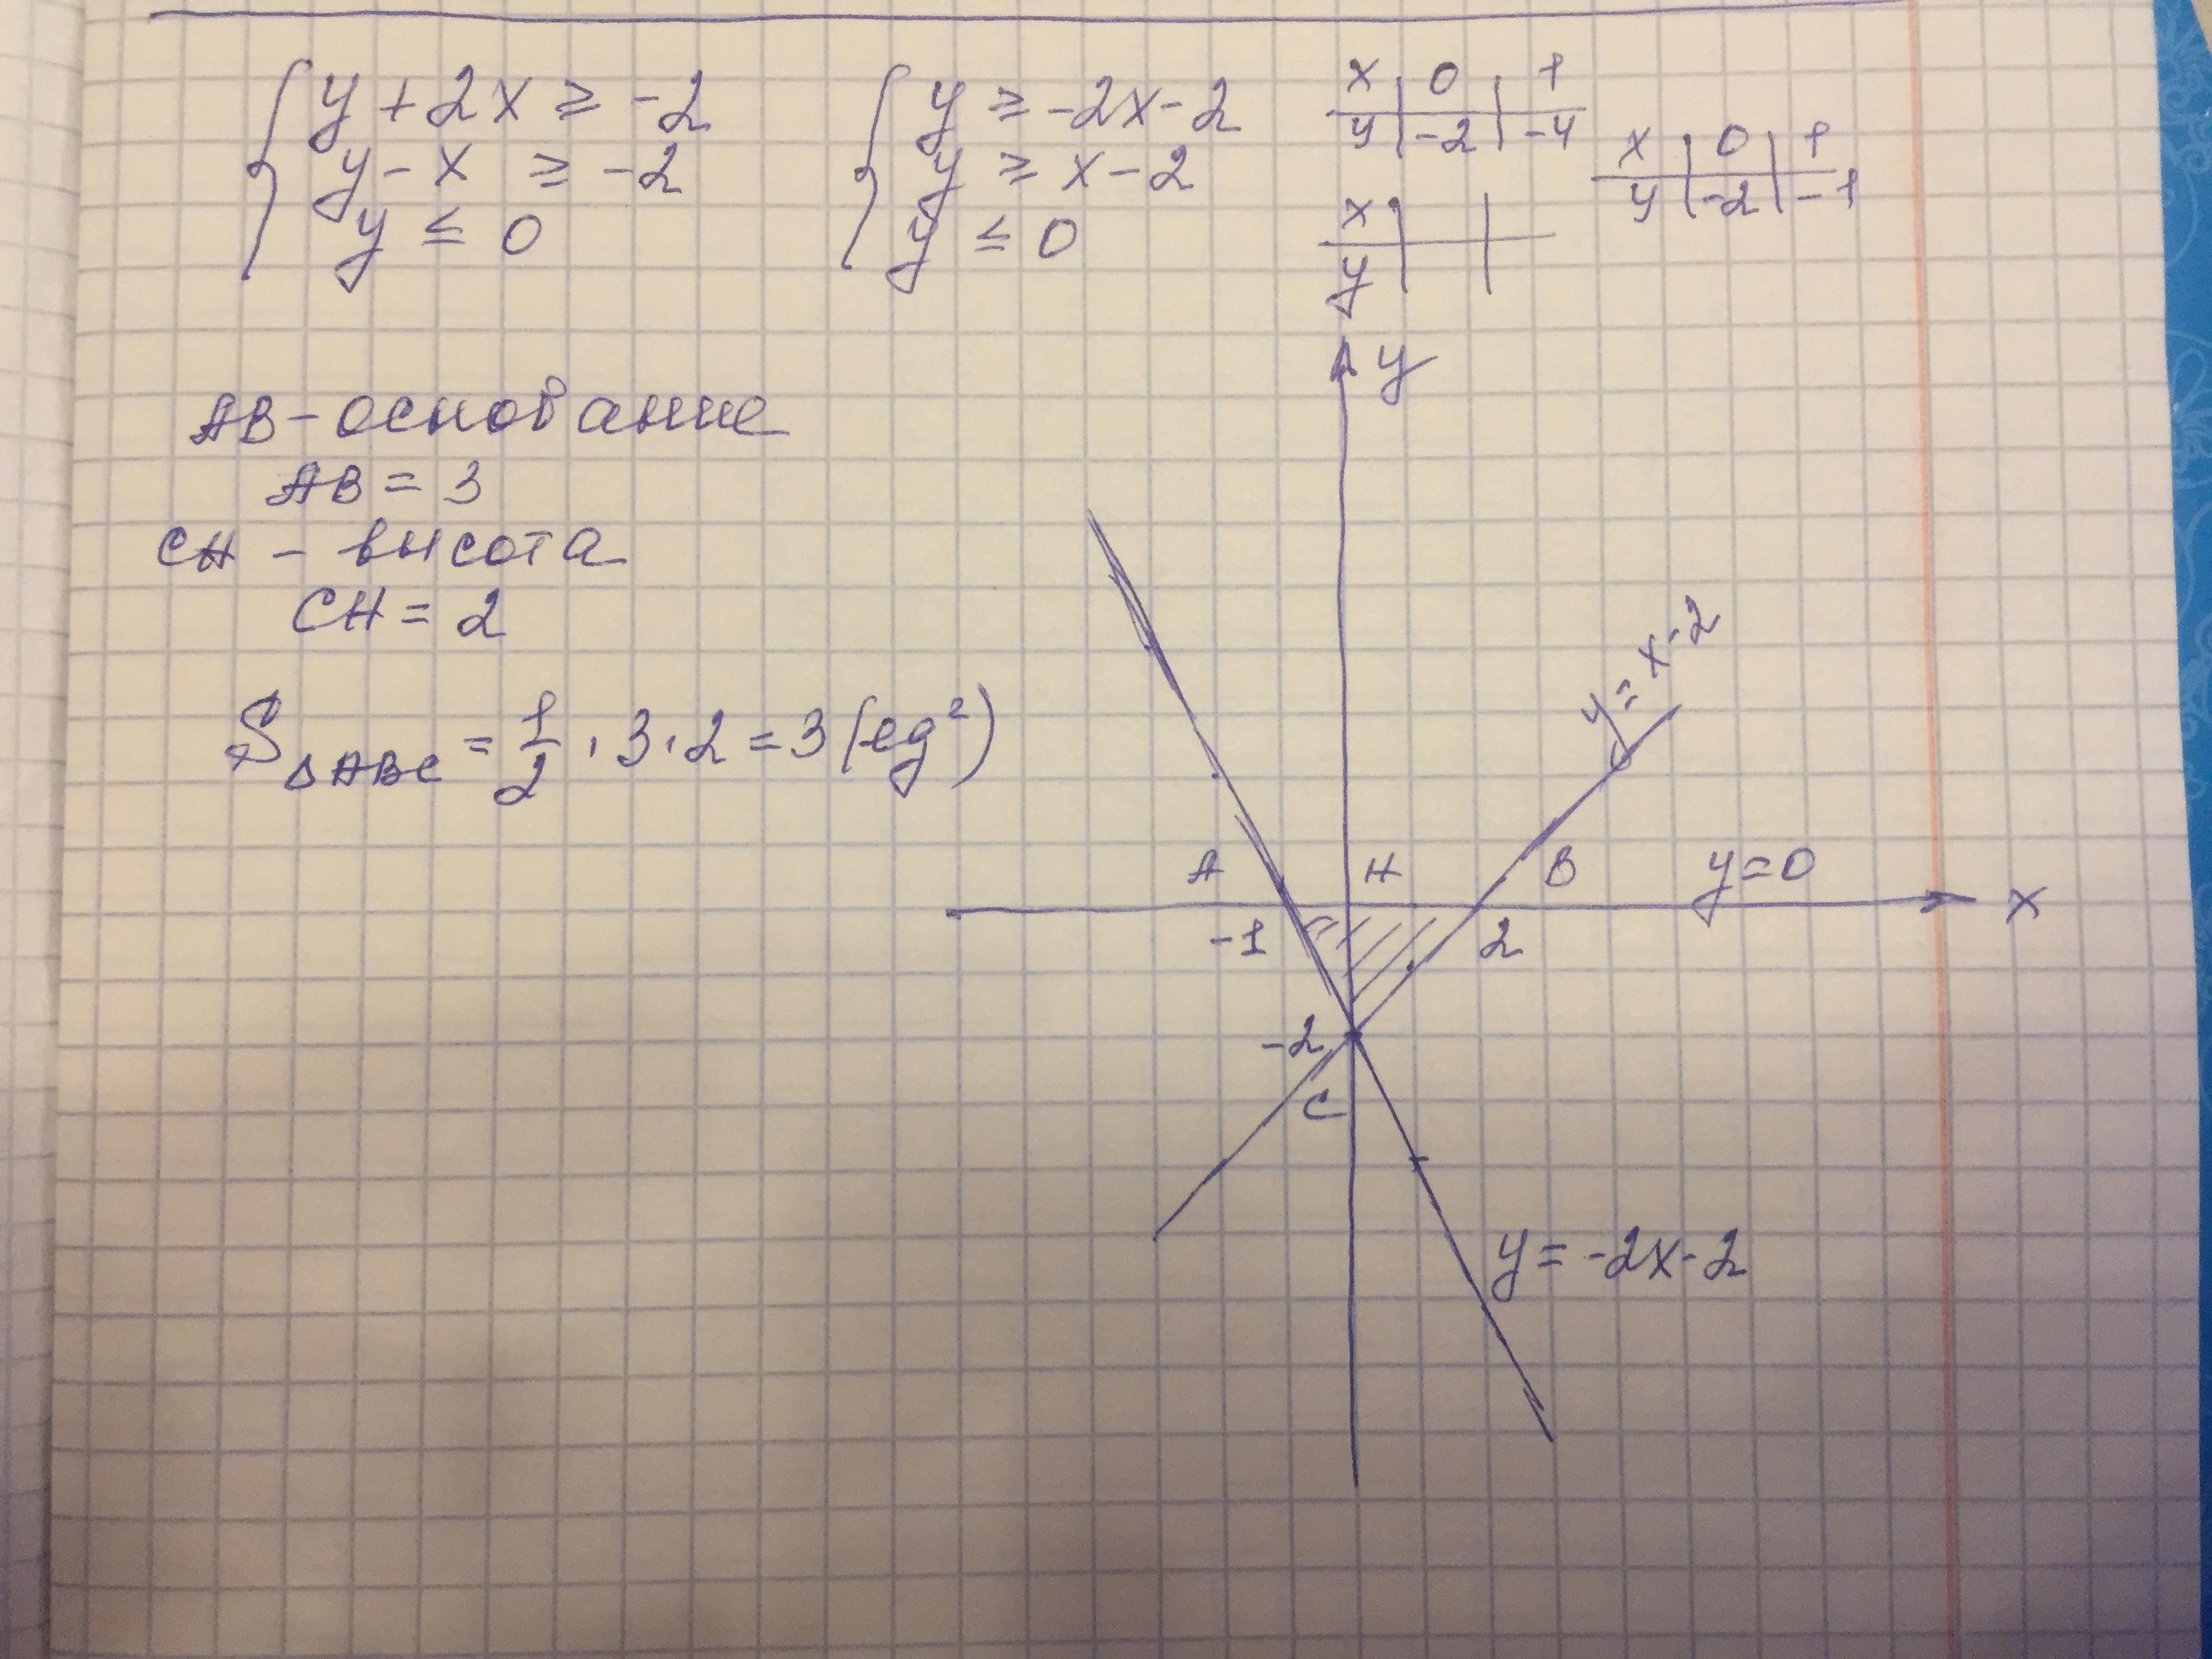 { y + 2x ≥ -2
y - x ≥ -2
y ≤ 0
{ y ≥ -2x - 2
y ≥ x - 2
y ≤ 0
x | 0 | 1
y | -2 | -4
x | 0 | 1
y | -2 | -1
x | |
y | |
AB - основание
AB = 3
CH - высота
CH = 2
S△ABC = 1/2 · 3 · 2 = 3 (ед²)
y
y = x - 2
A H B y = 0
-1 2 x
-2
C
y = -2x - 2